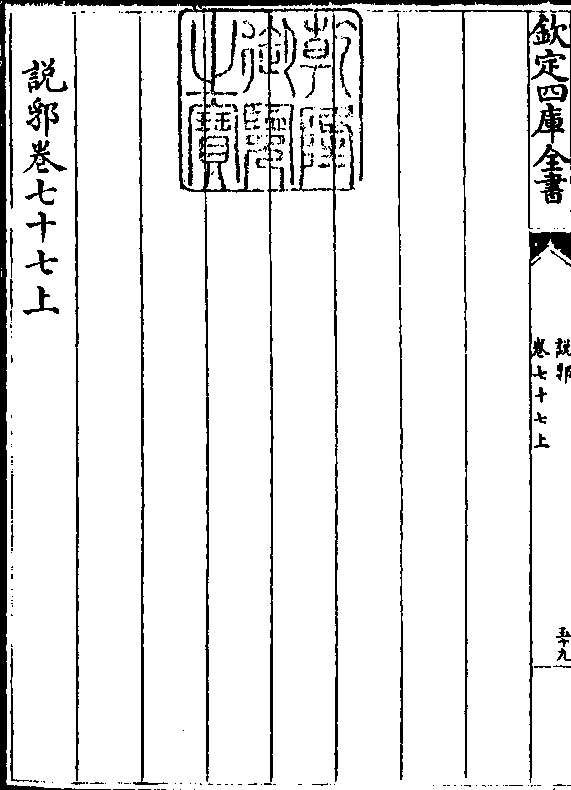 欽定四庫全書
說郛
卷七十七上
五十九
乾隆御覽之寶
說郛卷七十七上